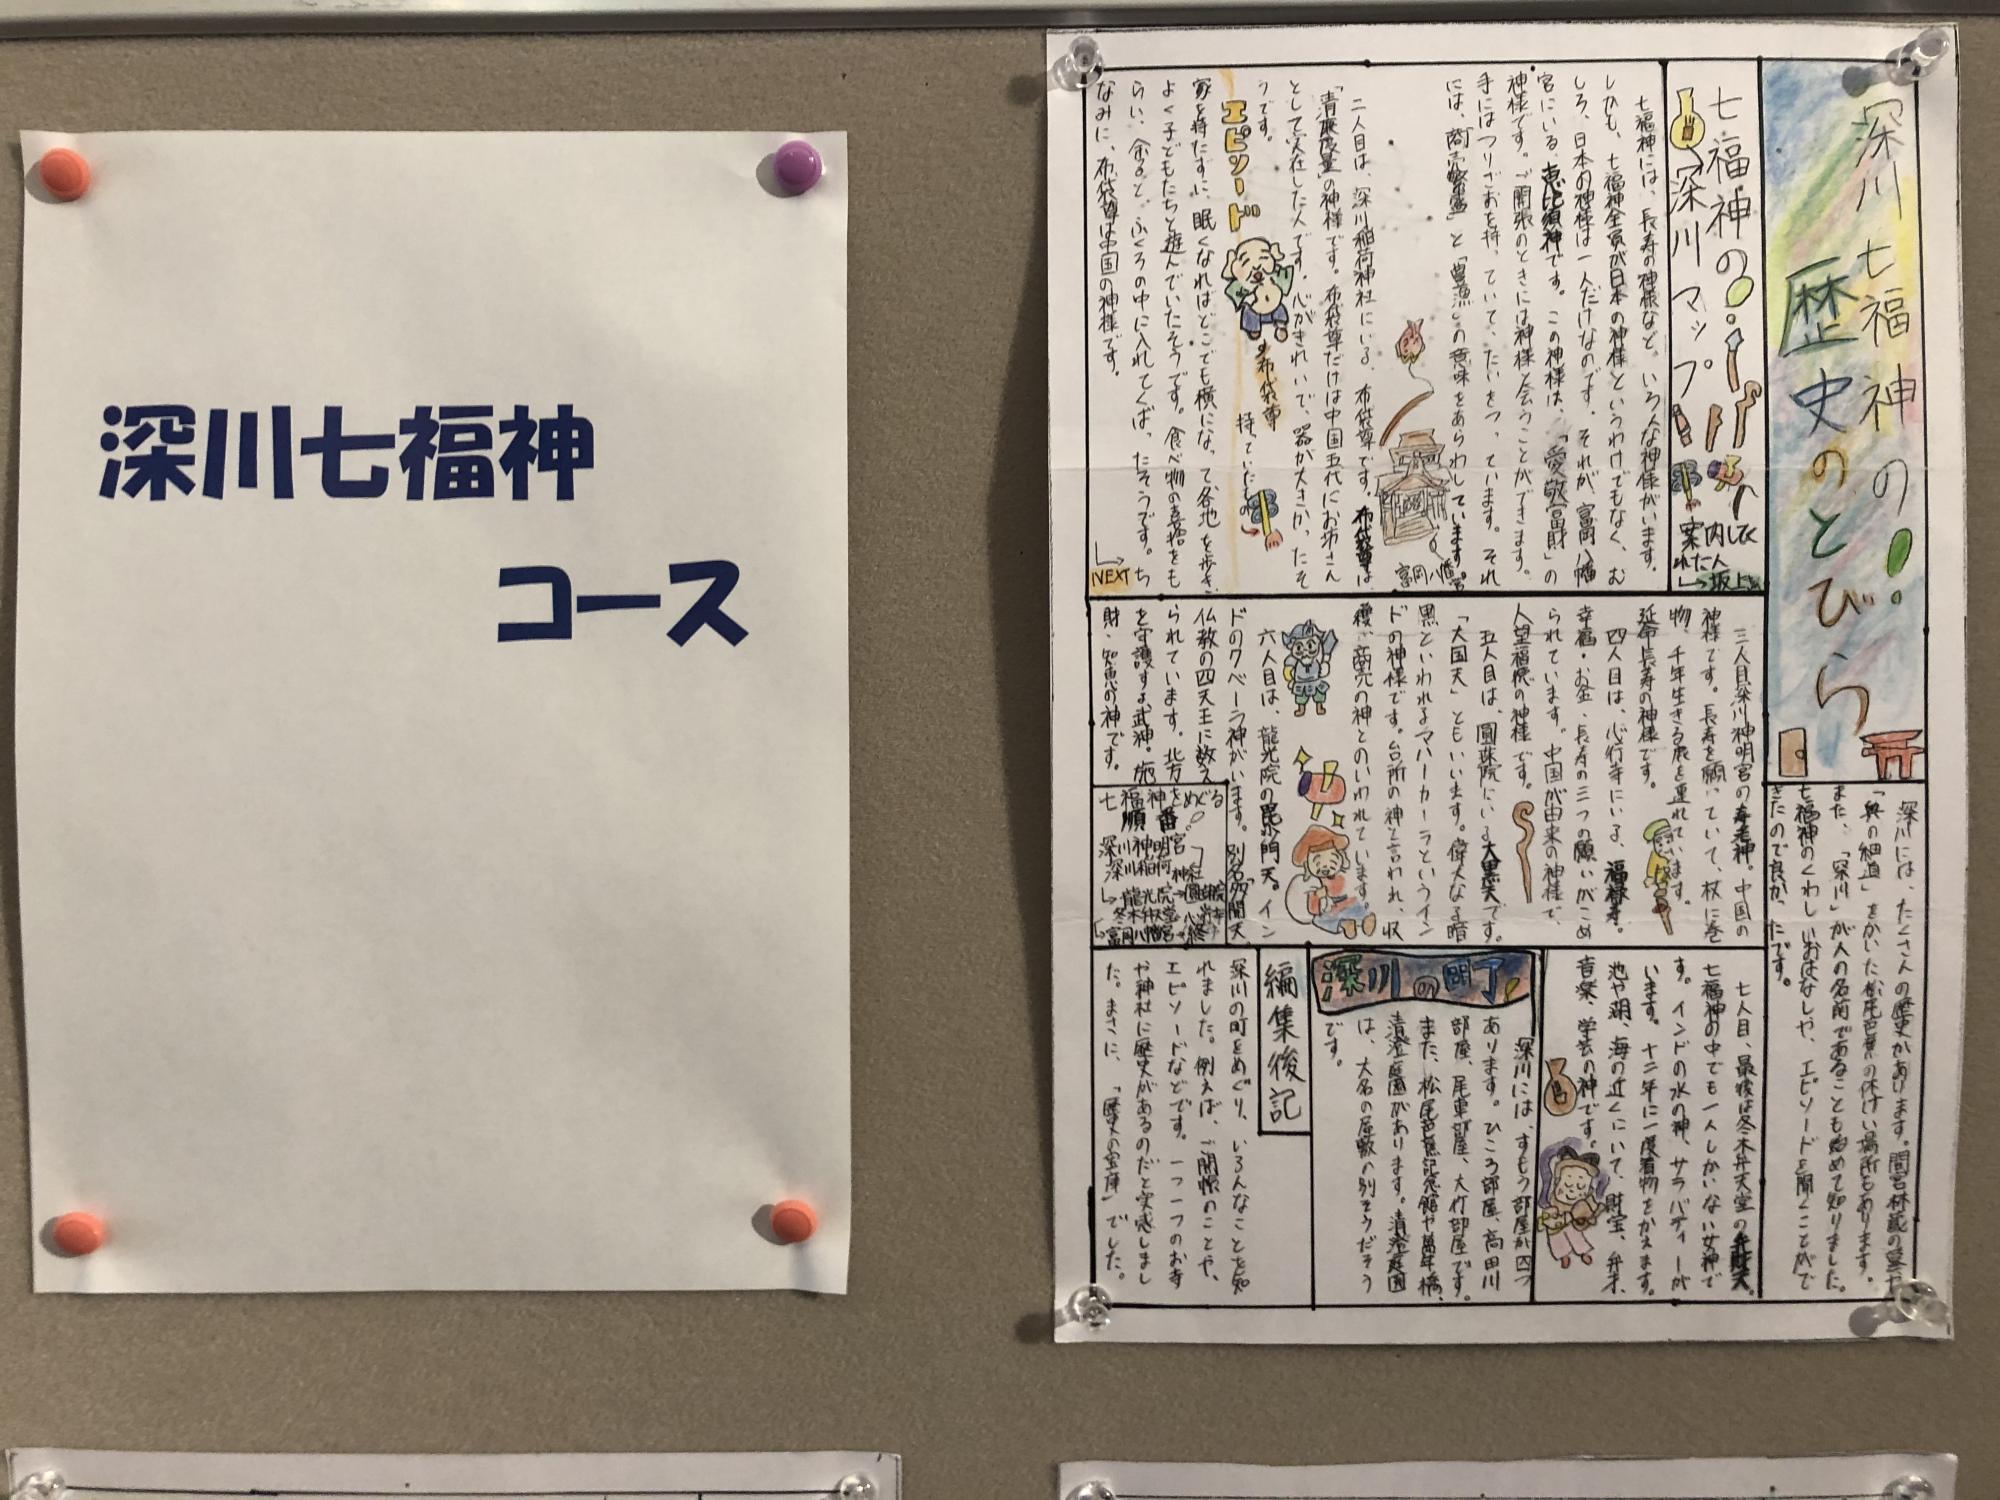 深川七福神
コース
深川七福神の
歴史のとびら
深川には、たくさんの歴史があります。間宮林蔵の墓や
「奥の細道」をかいた松尾芭蕉の休けい場所もあります。
また、「深川」が人の名前であることも初めて知りました。
七福神のくわしいおはなしや、エピソードを聞くことがで
きたので良かったです。
七福神の
深川マップ
案内してく
れた人
七福神には、長寿の神様など、いろんな神様がいます。
しかも、七福神全員が日本の神様というわけでもなく、む
しろ、日本の神様は一人だけなのです。それが、富岡八幡
宮にいる、恵比須神です。この神様は、「愛敬富財」の
神様です。ご開張のときには神様と会うことができます。
手にはつりざおを持っていて、たいをつっています。それ
には、「商売繁盛」と「豊漁」の意味をあらわしています。
富岡八幡宮
二人目は、深川稲荷神社にいる、布袋尊です。布袋尊は、
「清廉度量」の神様です。布袋尊だけは中国五代にお坊さん
として実在した人です。心がきれいで、器が大きかったそ
うです。
エピソード
布袋尊
持っていたもの
家を持たずに、眠くなればどこでも横になって各地を歩き、
よく子どもたちと遊んでいたそうです。食べ物の喜捨をも
らい、余ると、ふくろの中に入れてくばったそうです。ち
なみに、布袋尊は中国の神様です。
NEXT
三人目深川神明宮の寿老神。中国の
神様です。長寿を願っていて、杖に巻
物、千年生きる鹿を連れています。
延命長寿の神様です。
四人目は、心行寺にいる、福禄寿。
幸福・お金・長寿の三つの願いがこめ
られています。中国が由来の神様で、
人望福徳の神様です。
五人目は、圓珠院にいる大黒天です。
「大国天」ともいいます。偉大なる暗
黒といわれるマハーカーラというイン
ドの神様です。台所の神と言われ、収
穫・商売の神とのいわれています。
六人目は、龍光院の毘沙門天。イン
ドのクベーラ神がいます。別名多聞天。
仏教の四天王に数え
られています。北方
を守護する武神・施
財・知恵の神です。
七福神をめぐる
順番
七人目、最後は冬木弁天堂の弁財天。
七福神の中でも一人しかいない女神で
す。インドの水の神、サラバティーが
います。十二年に一度着物をかえます。
池や湖、海の近くにいて、財宝、弁才、
音楽、学芸の神です。
深川の明了
深川には、すもう部屋が四つ
あります。ひごろ部屋、高田川
部屋、尾車部屋、大竹部屋です。
また、松尾芭蕉記念館や萬年橋、
清澄庭園があります。清澄庭園
は、大名の屋敷の別そうだそう
です。
編集後記
深川の町をめぐり、いろんなことを知
れました。例えば、ご開帳のことや、
エピソードなどです。一つ一つのお寺
や神社に歴史があるのだと実感しまし
た。まさに、「歴史の宝庫」でした。